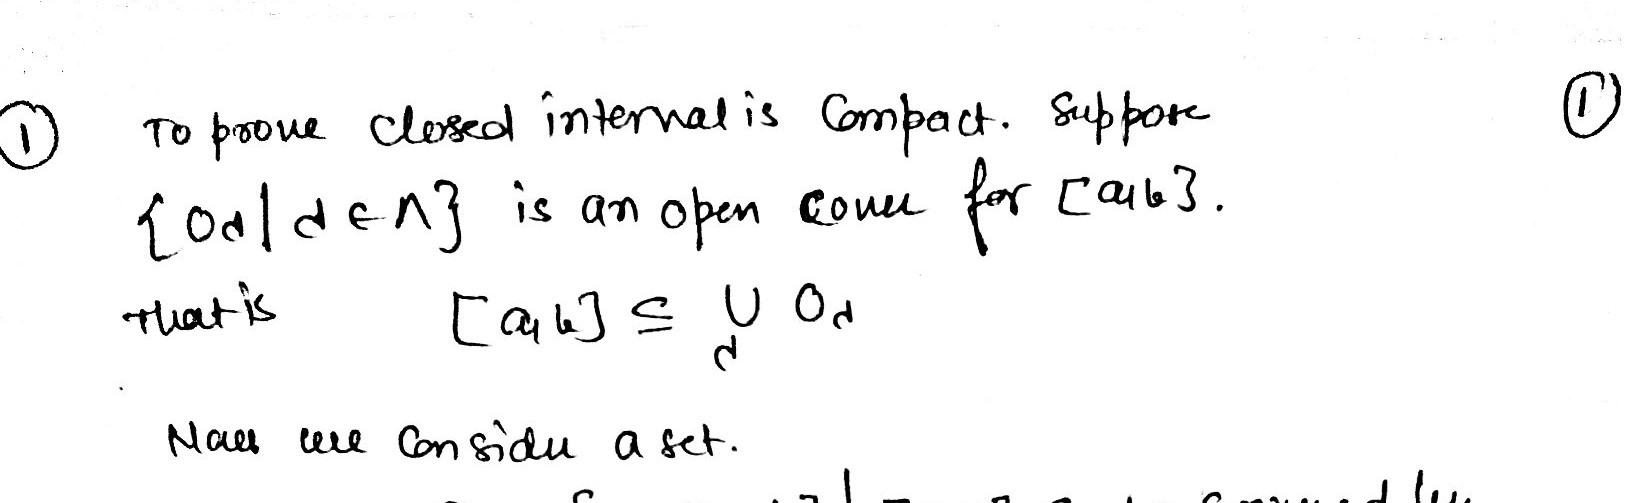 ① To prove closed interval is Compact. Suppose ①
{Oα | α ∈ Λ} is an open cover for [a,b}.
That is [a,b] ⊆ ∪ Oα
α
Now we Consider a set.